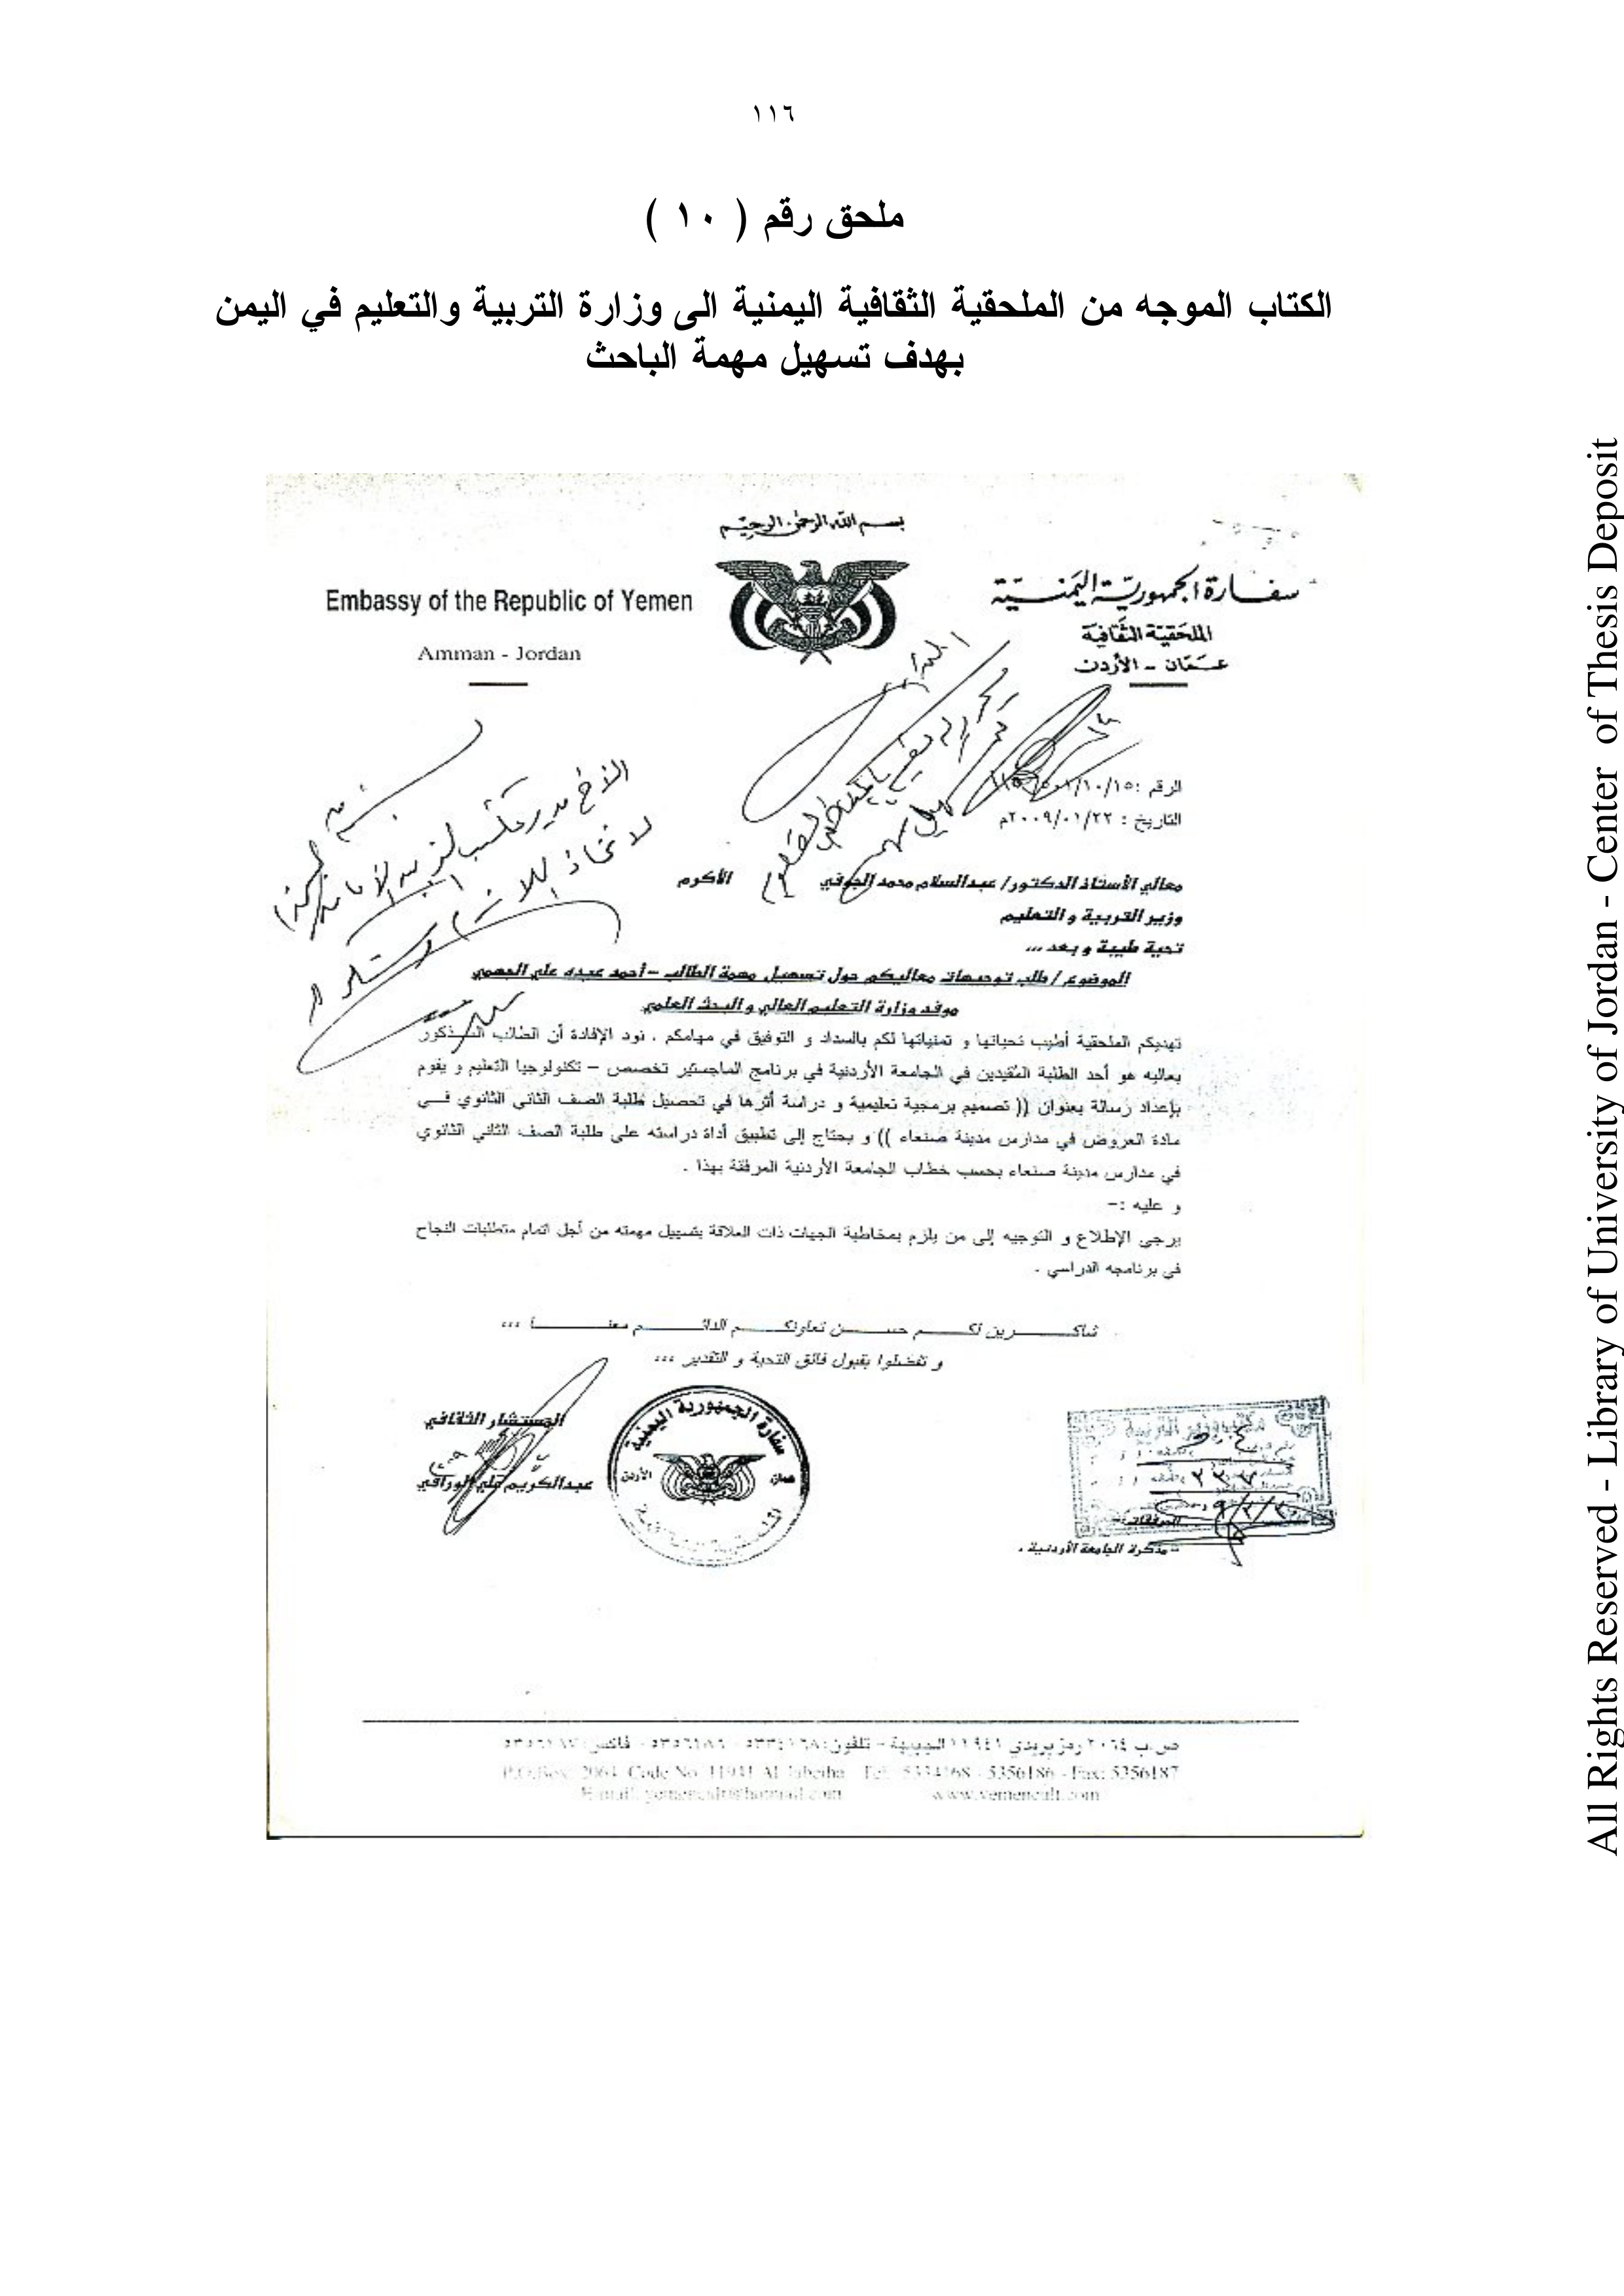 ١١٦
ملحق رقم ( ١٠ )
الكتاب الموجه من الملحقية الثقافية اليمنية الى وزارة التربية والتعليم في اليمن
بهدف تسهيل مهمة الباحث
بسم الله الرحمن الرحيم
سفارة الجمهورية اليمنية
الملحقية الثقافية
عمان - الأردن
Embassy of the Republic of Yemen
Amman - Jordan
الرقم :
التاريخ : ٢٠٠٩/٠١/٢٢م
معالي الأستاذ الدكتور/ عبدالسلام محمد الجوفي الأكرم
وزير التربية و التعليم
تحية طيبة و بعد ...
الموضوع / طلب توجيهات معاليكم حول تسهيل مهمة الطالب – أحمد عبده علي الجهمي
موفد وزارة التعليم العالي و البحث العلمي
تهديكم الملحقية أطيب تحياتها و تمنياتها لكم بالسداد و التوفيق في مهامكم . نود الإفادة أن الطالب المذكور
بعاليه هو أحد الطلبة المقيدين في الجامعة الأردنية في برنامج الماجستير تخصص – تكنولوجيا التعليم و يقوم
بإعداد رسالة بعنوان (( تصميم برمجية تعليمية و دراسة أثرها في تحصيل طلبة الصف الثاني الثانوي في
مادة العروض في مدارس مدينة صنعاء )) و يحتاج إلى تطبيق أداة دراسته على طلبة الصف الثاني الثانوي
في مدارس مدينة صنعاء بحسب خطاب الجامعة الأردنية المرفقة بهذا .
و عليه :-
يرجى الإطلاع و التوجيه إلى من يلزم بمخاطبة الجهات ذات العلاقة بتسهيل مهمته من أجل اتمام متطلبات النجاح
في برنامجه الدراسي .
شاكرين لكم حسن تعاونكم الدائم معنا ...
و تفضلوا بقبول فائق التحية و التقدير ...
المستشار الثقافي
عبدالكريم علي الوراقي
سفارة الجمهورية اليمنية
عمان الأردن
المرفقات :-
- مذكرة الجامعة الأردنية .
ص.ب ٢٠٦٤ رمز بريدي ١١٩٤١ الجبيهة - تلفون: فاكس:
P.O.Box: 2064 Code No. 11941 Al Jubeiha Tel: 5356186 - Fax: 5356187
E-mail: yemencult@hotmail.com www.yemencult.com
All Rights Reserved - Library of University of Jordan - Center of Thesis Deposit